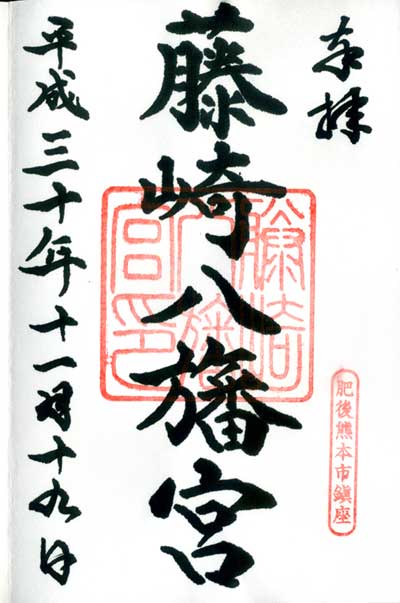 奉拝
肥後熊本市鎮座
藤崎八旛宮
藤崎八旛宮印
平成三十年十一月十九日